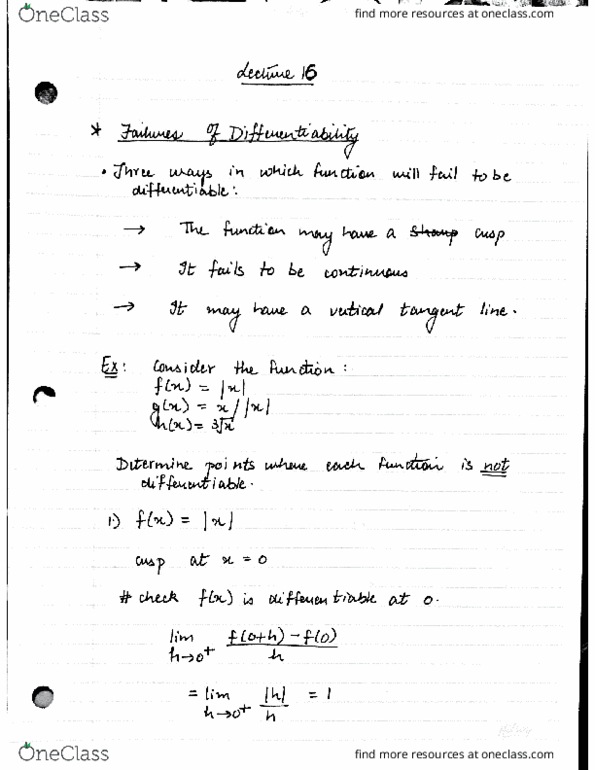 OneClass
find more resources at oneclass.com
Lecture 16
* Failures of Differentiability
• Three ways in which function will fail to be
differentiable:
→ The function may have a sharp cusp
→ It fails to be continuous
→ It may have a vertical tangent line.
Ex: Consider the function:
f(x) = |x|
g(x) = x/|x|
h(x) = 3√x
Determine points where each function is not
differentiable.
1) f(x) = |x|
cusp at x = 0
# check f(x) is differentiable at 0.
lim h→0⁺ f(0+h) - f(0) / h
= lim h→0⁺ |h| / h = 1
OneClass
find more resources at oneclass.com